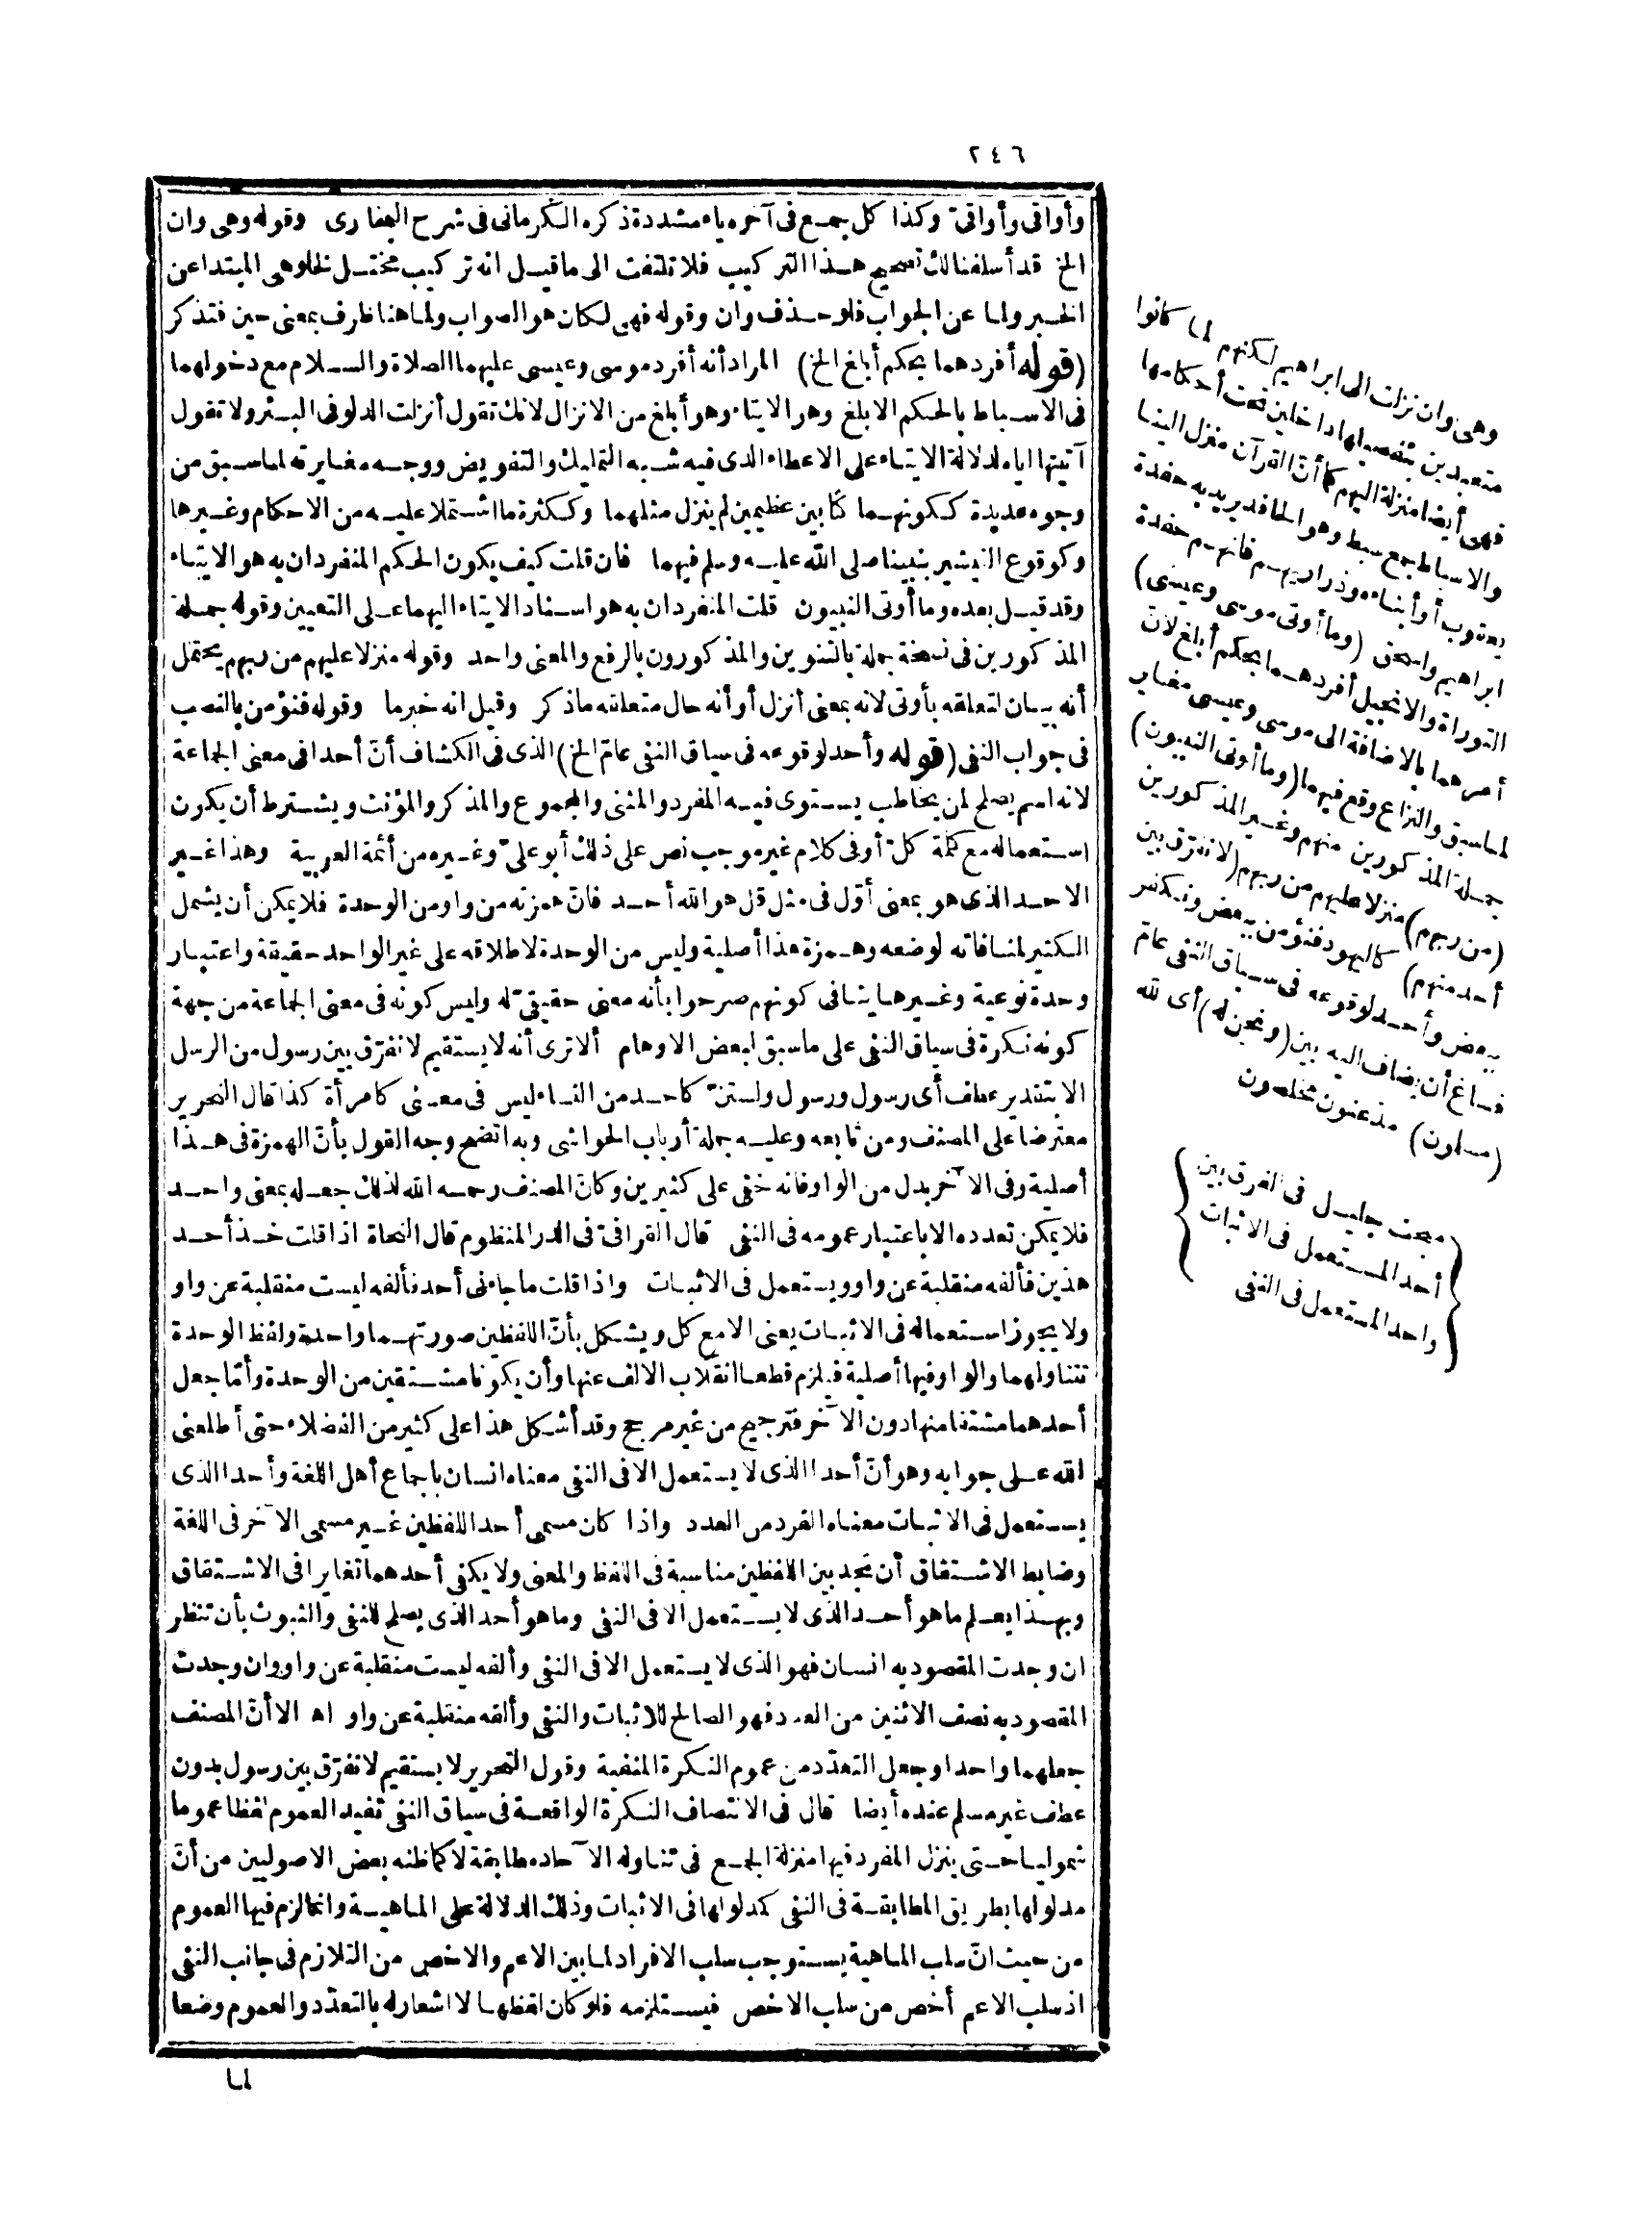 ٢٤٦
وأواقى وأواقىّ وكذا كل جمع فى آخره ياء مشددة ذكره الكرمانى فى شرح البخارى وقوله وهى وان
الخ قد أسلفنا لك تصحيح هذا التركيب فلا تلتفت الى ما قيل انه تركيب مختل لخلو هى المبتدا عن
الخبر ولما عن الجواب فلو حذف وان وقوله فهى لكان هو الصواب ولما هنا ظرف بمعنى حين فتذكر
(قوله أفردهما بحكم أبلغ الخ) المراد أنه أفرد موسى وعيسى عليهما الصلاة والسلام مع دخولهما
فى الاسباط بالحكم الابلغ وهو الايتاء وهو أبلغ من الانزال لانك تقول أنزلت الدلو فى البئر ولا تقول
آتيتها اياه لدلالة الايتاء على الاعطاء الذى فيه شبه التمليك والتفويض ووجه مغايرته لما سبق من
وجوه عديدة ككونهما كتابين عظيمين لم ينزل مثلهما وككثرة ما اشتملا عليه من الاحكام وغيرها
وكوقوع التبشير بنبينا صلى الله عليه وسلم فيهما فان قلت كيف يكون الحكم المنفردان به هو الايتاء
وقد قيل بعده وما أوتى النبيون قلت المنفردان به هو اسناد الايتاء اليهما على التعيين وقوله جملة
المذكورين فى نسخة جملة بالتنوين والمذكورون بالرفع والمعنى واحد وقوله منزلا عليهم من ربهم يحتمل
أنه بيان لتعلقه بأوتى لانه بمعنى أنزل أو أنه حال متعلقه ما ذكر وقيل انه خبر ما وقوله فنؤمن بالنصب
فى جواب النفى (قوله وأحد لوقوعه فى سياق النفى عامّ الخ) الذى فى الكشاف أنّ أحدا فى معنى الجماعة
لانه اسم يصلح لمن يخاطب يستوى فيه المفرد والمثنى والمجموع والمذكر والمؤنث ويشترط أن يكون
استعماله مع كلمة كلّ أو فى كلام غير موجب نص على ذلك أبو علىّ وغيره من أئمة العربية وهذا غير
الاحد الذى هو بمعنى أوّل فى مثل قل هو الله أحد فانّ همزته من واو من الوحدة فلا يمكن أن يشمل
الكثير لمنافاته لوضعه وهمزة هذا أصلية وليس من الوحدة لاطلاقه على غير الواحد حقيقة واعتبار
وحدة نوعية وغيرها ينافى كونهم صرحوا بأنه معنى حقيقىّ له وليس كونه فى معنى الجماعة من جهة
كونه نكرة فى سياق النفى على ما سبق لبعض الاوهام ألا ترى أنه لا يستقيم لا نفرّق بين رسول من الرسل
الا بتقدير عطف أى رسول ورسول ولستنّ كأحد من النساء ليس فى معنى كامرأة كذا قال النحرير
معترضا على المصنف ومن تابعه وعليه جملة أرباب الحواشى وبه اتضح وجه القول بأنّ الهمزة فى هذا
أصلية وفى الآخر بدل من الواو فانه خفى على كثيرين وكانّ المصنف رحمه الله لذلك جعله بمعنى واحد
فلا يمكن تعدده الا باعتبار عمومه فى النفى قال القرافىّ فى الدر المنظوم قال النحاة اذا قلت خذ أحد
هذين فألفه منقلبة عن واو ويستعمل فى الاثبات واذا قلت ما جاءنى أحد فألفه ليست منقلبة عن واو
ولا يجوز استعماله فى الاثبات يعنى الا مع كل ويشكل بأنّ اللفظين صورتهما واحدة ولفظ الوحدة
تتناولهما والواو فيها أصلية فيلزم قطعا انقلاب الالف عنها وأن يكونا مشتقين من الوحدة وأمّا جعل
أحدهما مشتقا منها دون الآخر فترجيح من غير مرجح وقد أشكل هذا على كثير من الفضلاء حتى أطلعنى
الله على جوابه وهو أنّ أحدا الذى لا يستعمل الا فى النفى معناه انسان باجماع أهل اللغة وأحدا الذى
يستعمل فى الاثبات معناه الفرد من العدد واذا كان مسمى أحد اللفظين غير مسمى الآخر فى اللغة
وضابط الاشتقاق أن نجد بين اللفظين مناسبة فى اللفظ والمعنى ولا يكفى أحدهما تغايرا فى الاشتقاق
وبهذا يعلم ما هو أحد الذى لا يستعمل الا فى النفى وما هو أحد الذى يصلح للنفى والثبوت بأن تنظر
ان وجدت المقصود به انسان فهو الذى لا يستعمل الا فى النفى وألفه ليست منقلبة عن واو وان وجدت
المقصود به نصف الاثنين من العدد فهو الصالح للاثبات والنفى وألفه منقلبة عن واو اه الا أنّ المصنف
جعلهما واحدا وجعل التعدّد من عموم النكرة المنفية وقول النحرير لا يستقيم لا نفرّق بين رسول بدون
عطف غير مسلم عنده أيضا قال فى الانتصاف النكرة الواقعة فى سياق النفى تفيد العموم لفظا عموما
شموليا حتى ينزل المفرد فيها منزلة الجمع فى تناوله الآحاد مطابقة لا كما ظنه بعض الاصوليين من أنّ
مدلولها بطريق المطابقة فى النفى كمدلولها فى الاثبات وذلك الدلالة على الماهية وانما لزم فيها العموم
من حيث انّ سلب الماهية يستوجب سلب الافراد لما بين الاعم والاخص من التلازم فى جانب النفى
اذ سلب الاعم أخص من سلب الاخص فيستلزمه فلو كان لفظها لا اشعار له بالتعدّد والعموم وضعا
لما
وهى وان نزلت الى ابراهيم لكنهم لما كانوا
متعبدين بتفصيلها داخلين تحت أحكامها
فهى أيضا منزلة اليهم كما أنّ القرآن منزل الينا
والاسباط جمع سبط وهو الحافد يريد به حفدة
يعقوب أو أبناءه وذراريهم فانهم حفدة
ابراهيم واسحق (وما أوتى موسى وعيسى)
التوراة والانجيل أفردهما بحكم أبلغ لانّ
أمرهما بالاضافة الى موسى وعيسى مغاير
لما سبق والنزاع وقع فيهما (وما أوتى النبيون)
جملة المذكورين منهم وغير المذكورين
(من ربهم) منزلا عليهم من ربهم (لا نفرّق بين
أحد منهم) كاليهود فنؤمن ببعض ونكفر
ببعض وأحد لوقوعه فى سياق النفى عامّ
فساغ أن يضاف اليه بين (ونحن له) أى لله
(مسلمون) مذعنون مخلصون
مبحث جليل فى الفرق بين
أحد المستعمل فى الاثبات
واحد المستعمل فى النفى